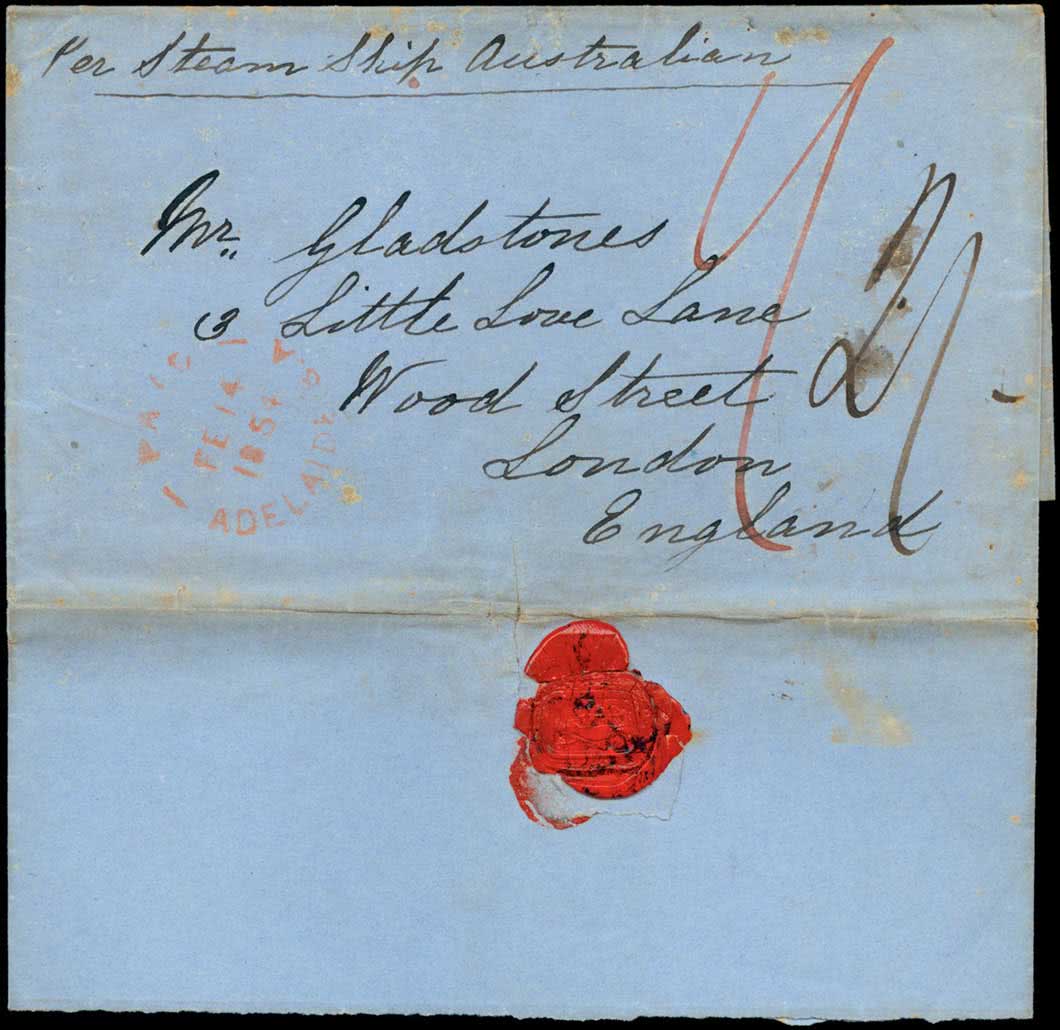 Per Steam Ship Australian
Mr. Gladstones
3 Little Love Lane
Wood Street
London
England
PAID
FE 14
1854
ADELAIDE